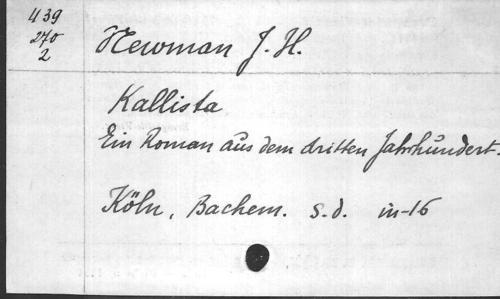 439
270
2
Newman J. H.
Kallista
Ein Roman aus dem dritten Jahrhundert.
Köln, Bachem. s.d. in-16